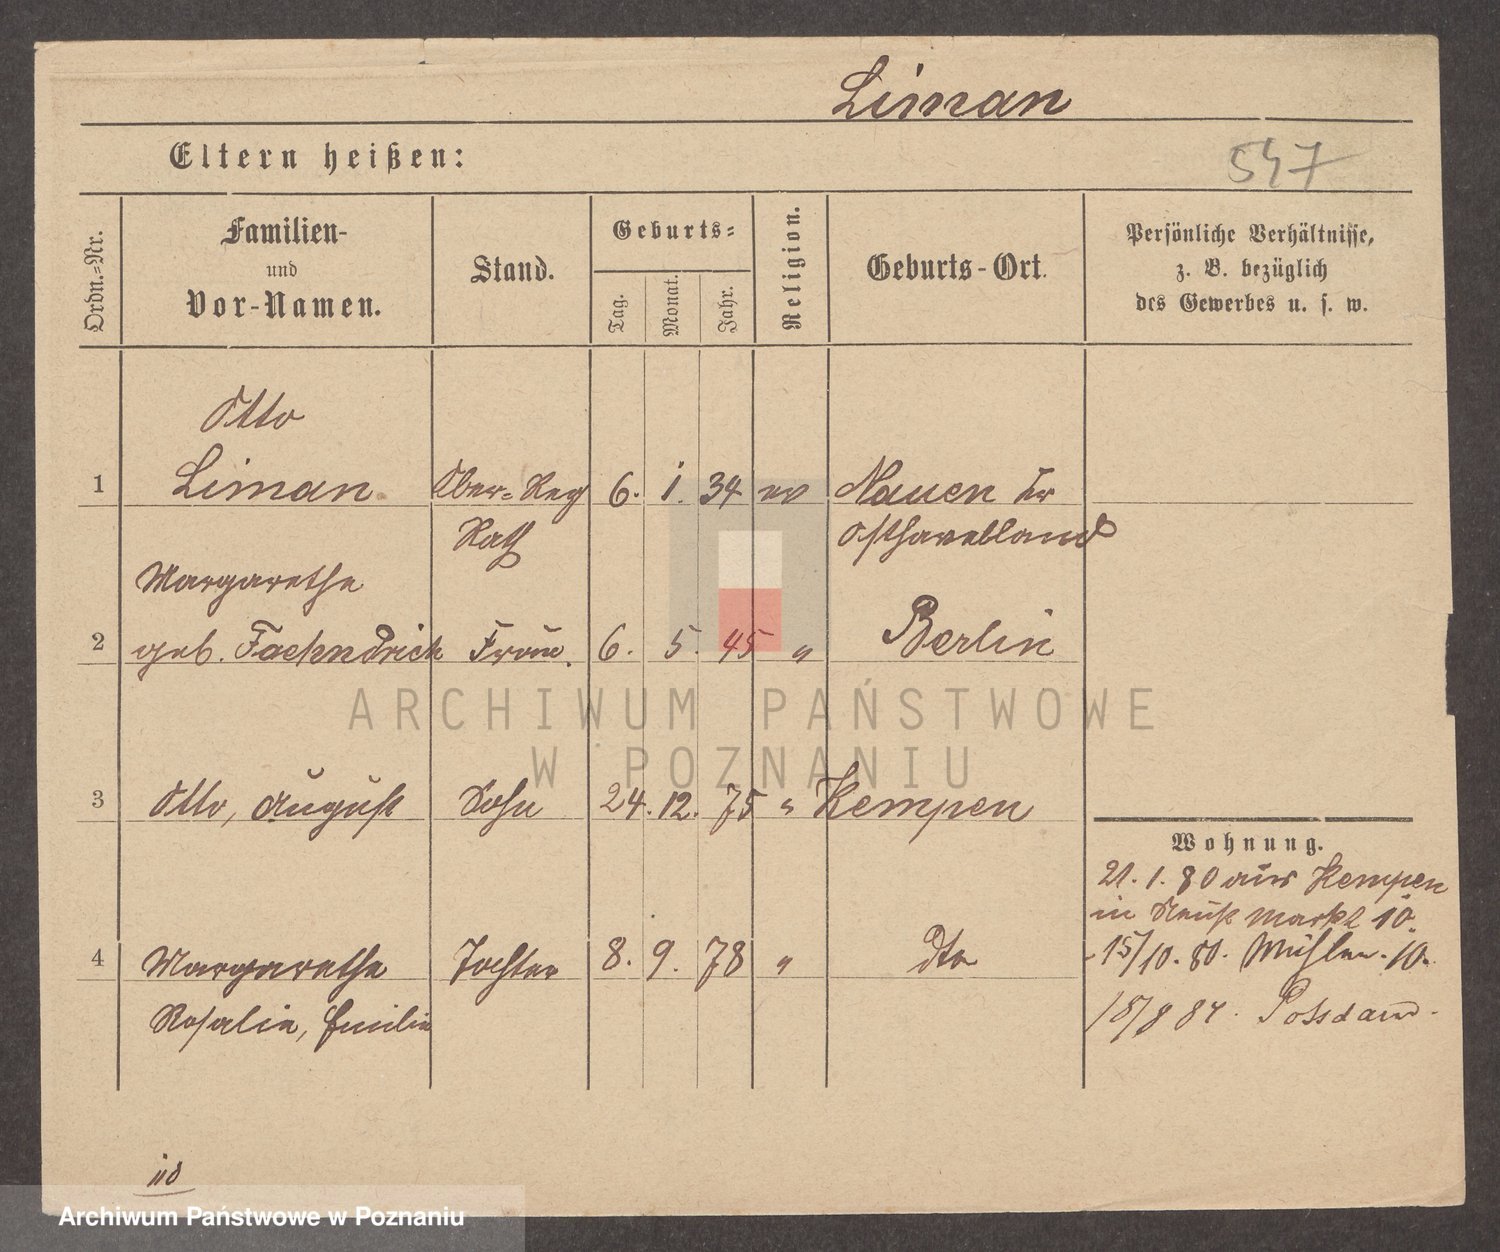 Liman
Eltern heißen:
547
Ordn.=Nr.
Familien-
und
Vor-Namen.
Stand.
Geburts=
Tag.
Monat.
Jahr.
Religion.
Geburts-Ort.
Persönliche Verhältnisse,
z. B. bezüglich
des Gewerbes u. s. w.
Otto
1 Liman Ober=Reg 6. 1. 34 ev Nauen Kr
Rath Osthavelland
Margarethe
2 geb. Frau. 6. 5. 45 " Berlin
ARCHIWUM PAŃSTWOWE
W POZNANIU
3 Otto, August Sohn 24. 12. 75 " Kempen
Wohnung.
21. 1. 80 aus Kempen
in Neust Markt 10.
4 Margarethe Tochter 8. 9. 78 " dto
Rosalie, Emilie
15/10. 80. Mühlen. 10.
15/9 84. Potsdam.
Archiwum Państwowe w Poznaniu